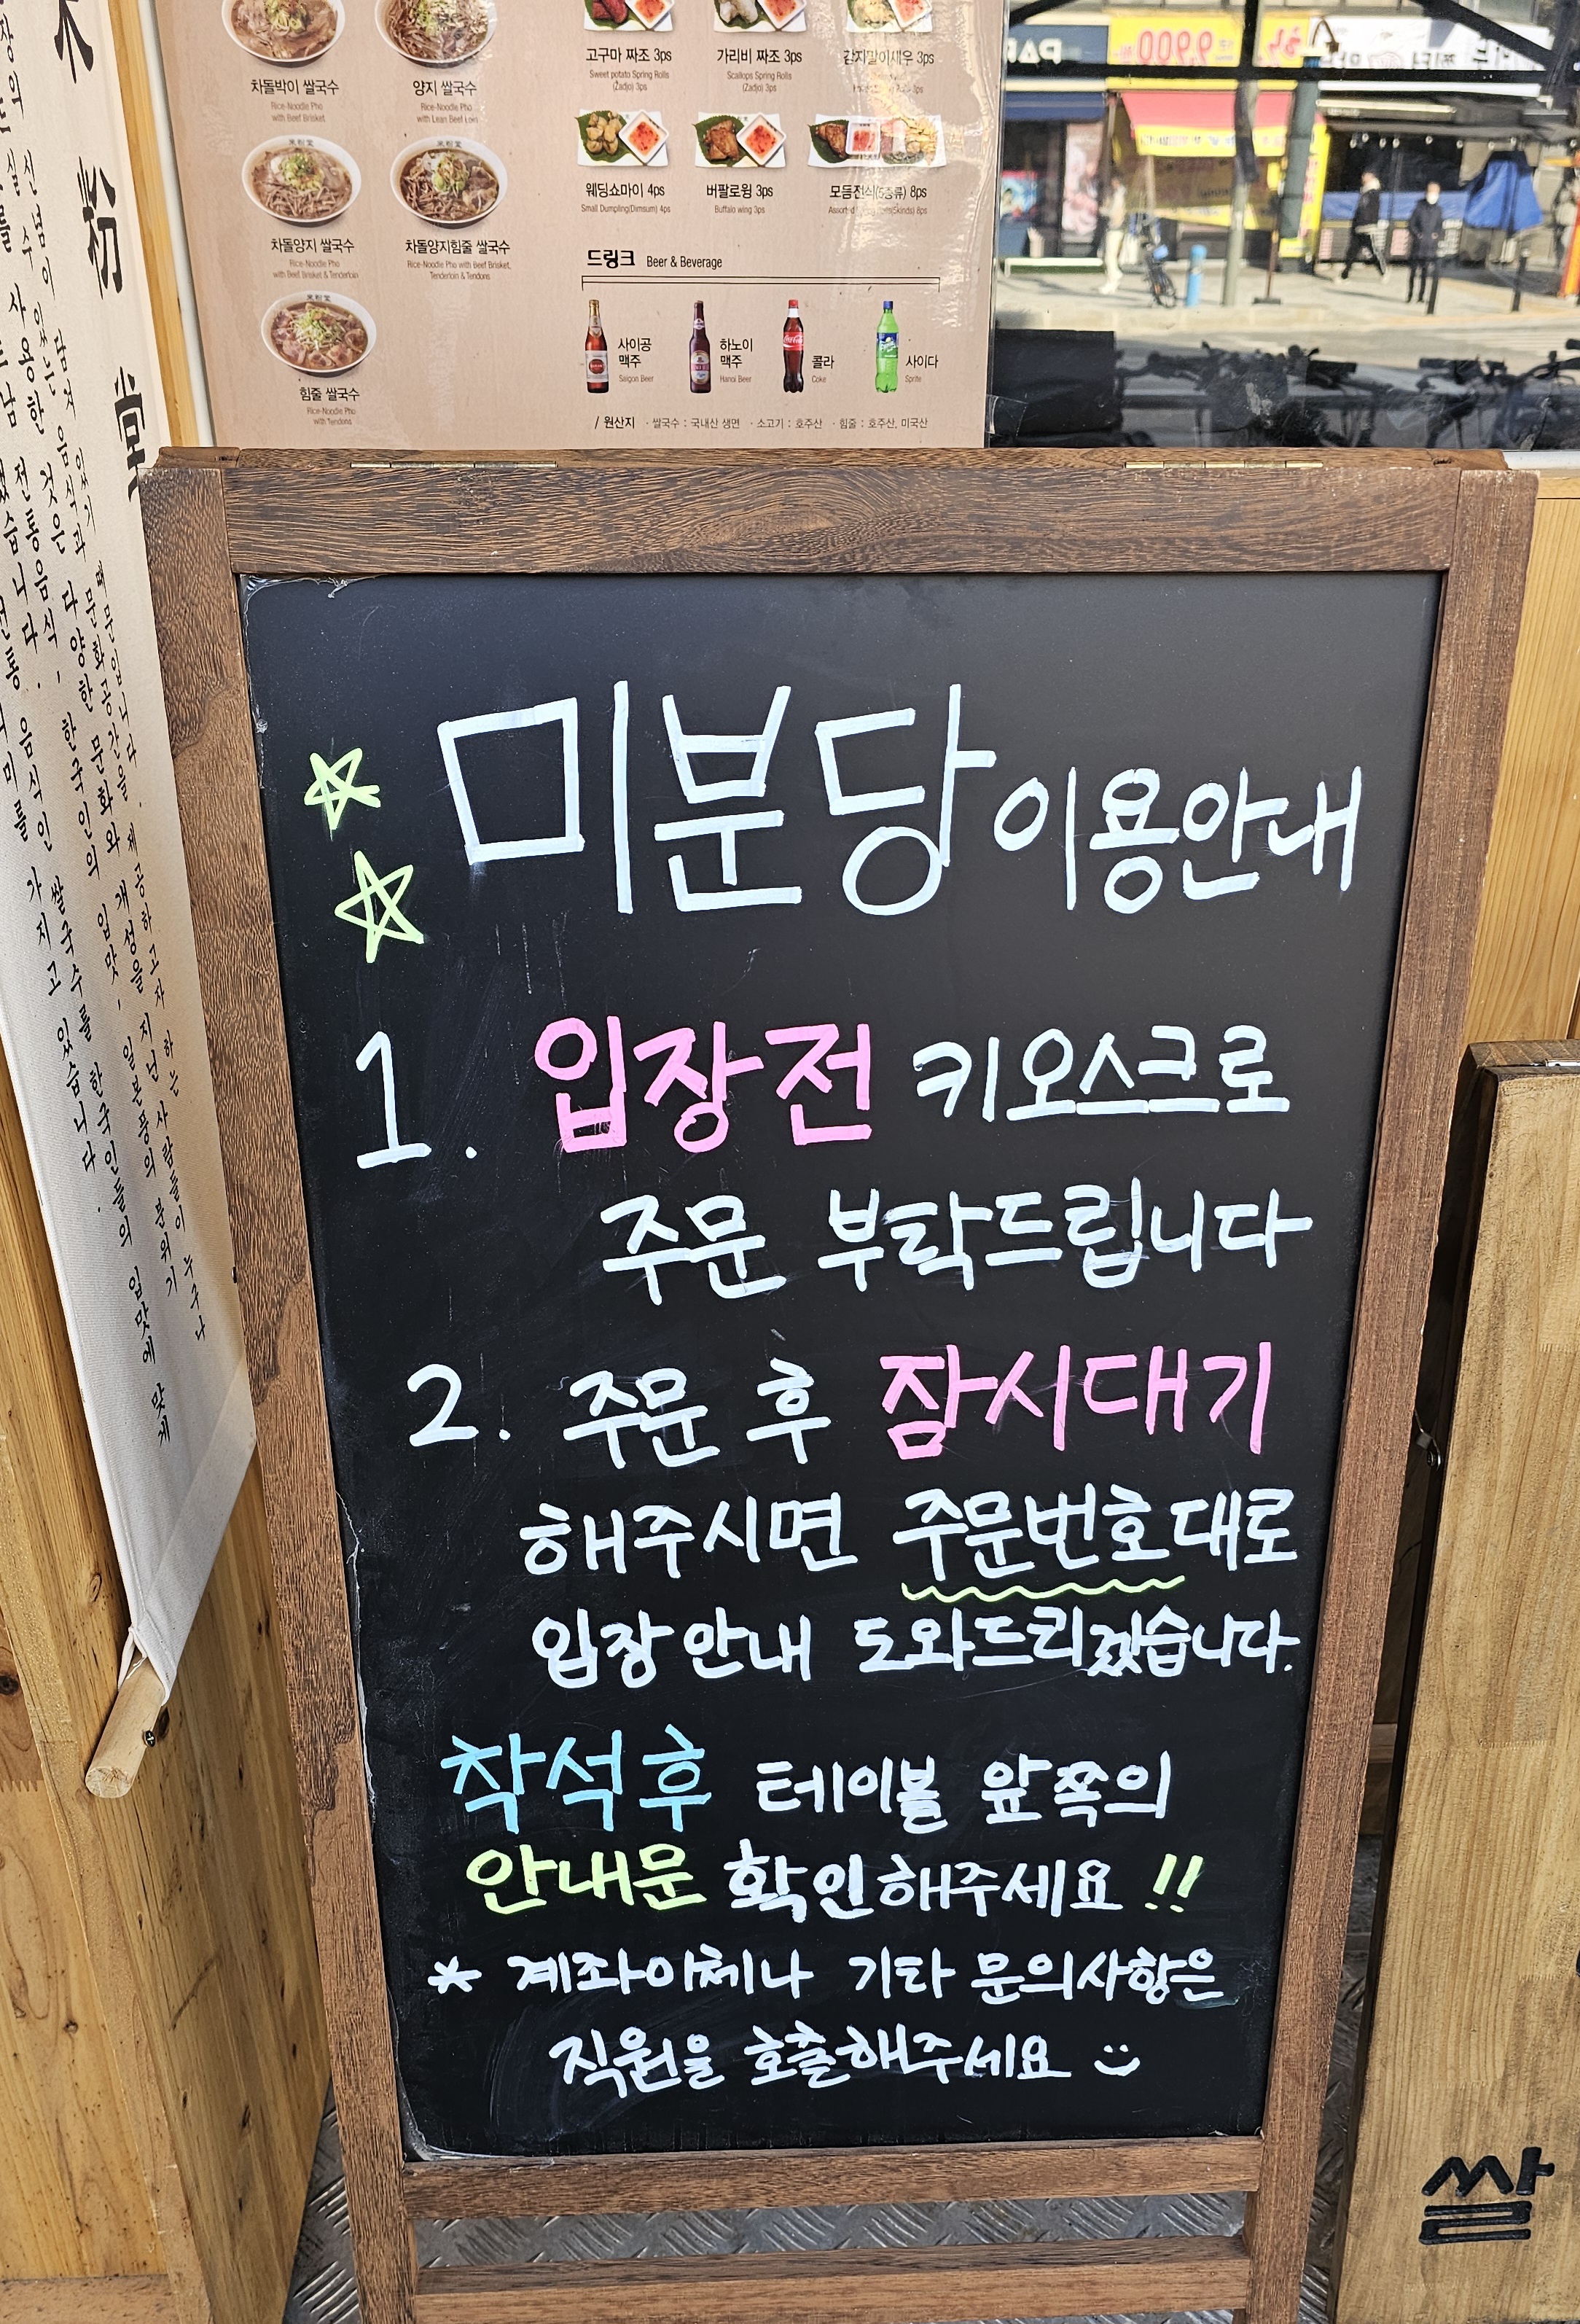 차돌박이 쌀국수
Rice-Noodle Pho
with Beef Brisket
양지 쌀국수
Rice-Noodle Pho
with Lean Beef Loin
차돌양지 쌀국수
Rice-Noodle Pho
with Beef Brisket & Tenderloin
차돌양지힘줄 쌀국수
Rice-Noodle Pho with Beef Brisket,
Tenderloin & Tendons
힘줄 쌀국수
Rice-Noodle Pho
with Tendons
고구마 짜조 3ps
Sweet potato Spring Rolls
(Zadjo) 3ps
가리비 짜조 3ps
Scallops Spring Rolls
(Zadjo) 3ps
감자말이새우 3ps
웨딩쇼마이 4ps
Small Dumpling(Dimsum) 4ps
버팔로윙 3ps
Buffalo wing 3ps
모듬전식(5종류) 8ps
드링크 Beer & Beverage
사이공
맥주
Saigon Beer
하노이
맥주
Hanoi Beer
콜라
Coke
사이다
Sprite
/ 원산지 · 쌀국수 : 국내산 생면 · 소고기 : 호주산 · 힘줄 : 호주산, 미국산
粉
堂
미분당 이용안내
1. 입장 전 키오스크로
주문 부탁드립니다
2. 주문 후 잠시대기
해주시면 주문번호대로
입장 안내 도와드리겠습니다.
착석 후 테이블 앞쪽의
안내문 확인해주세요 !!
* 계좌이체나 기타 문의사항은
직원을 호출해주세요
쌀
9,900